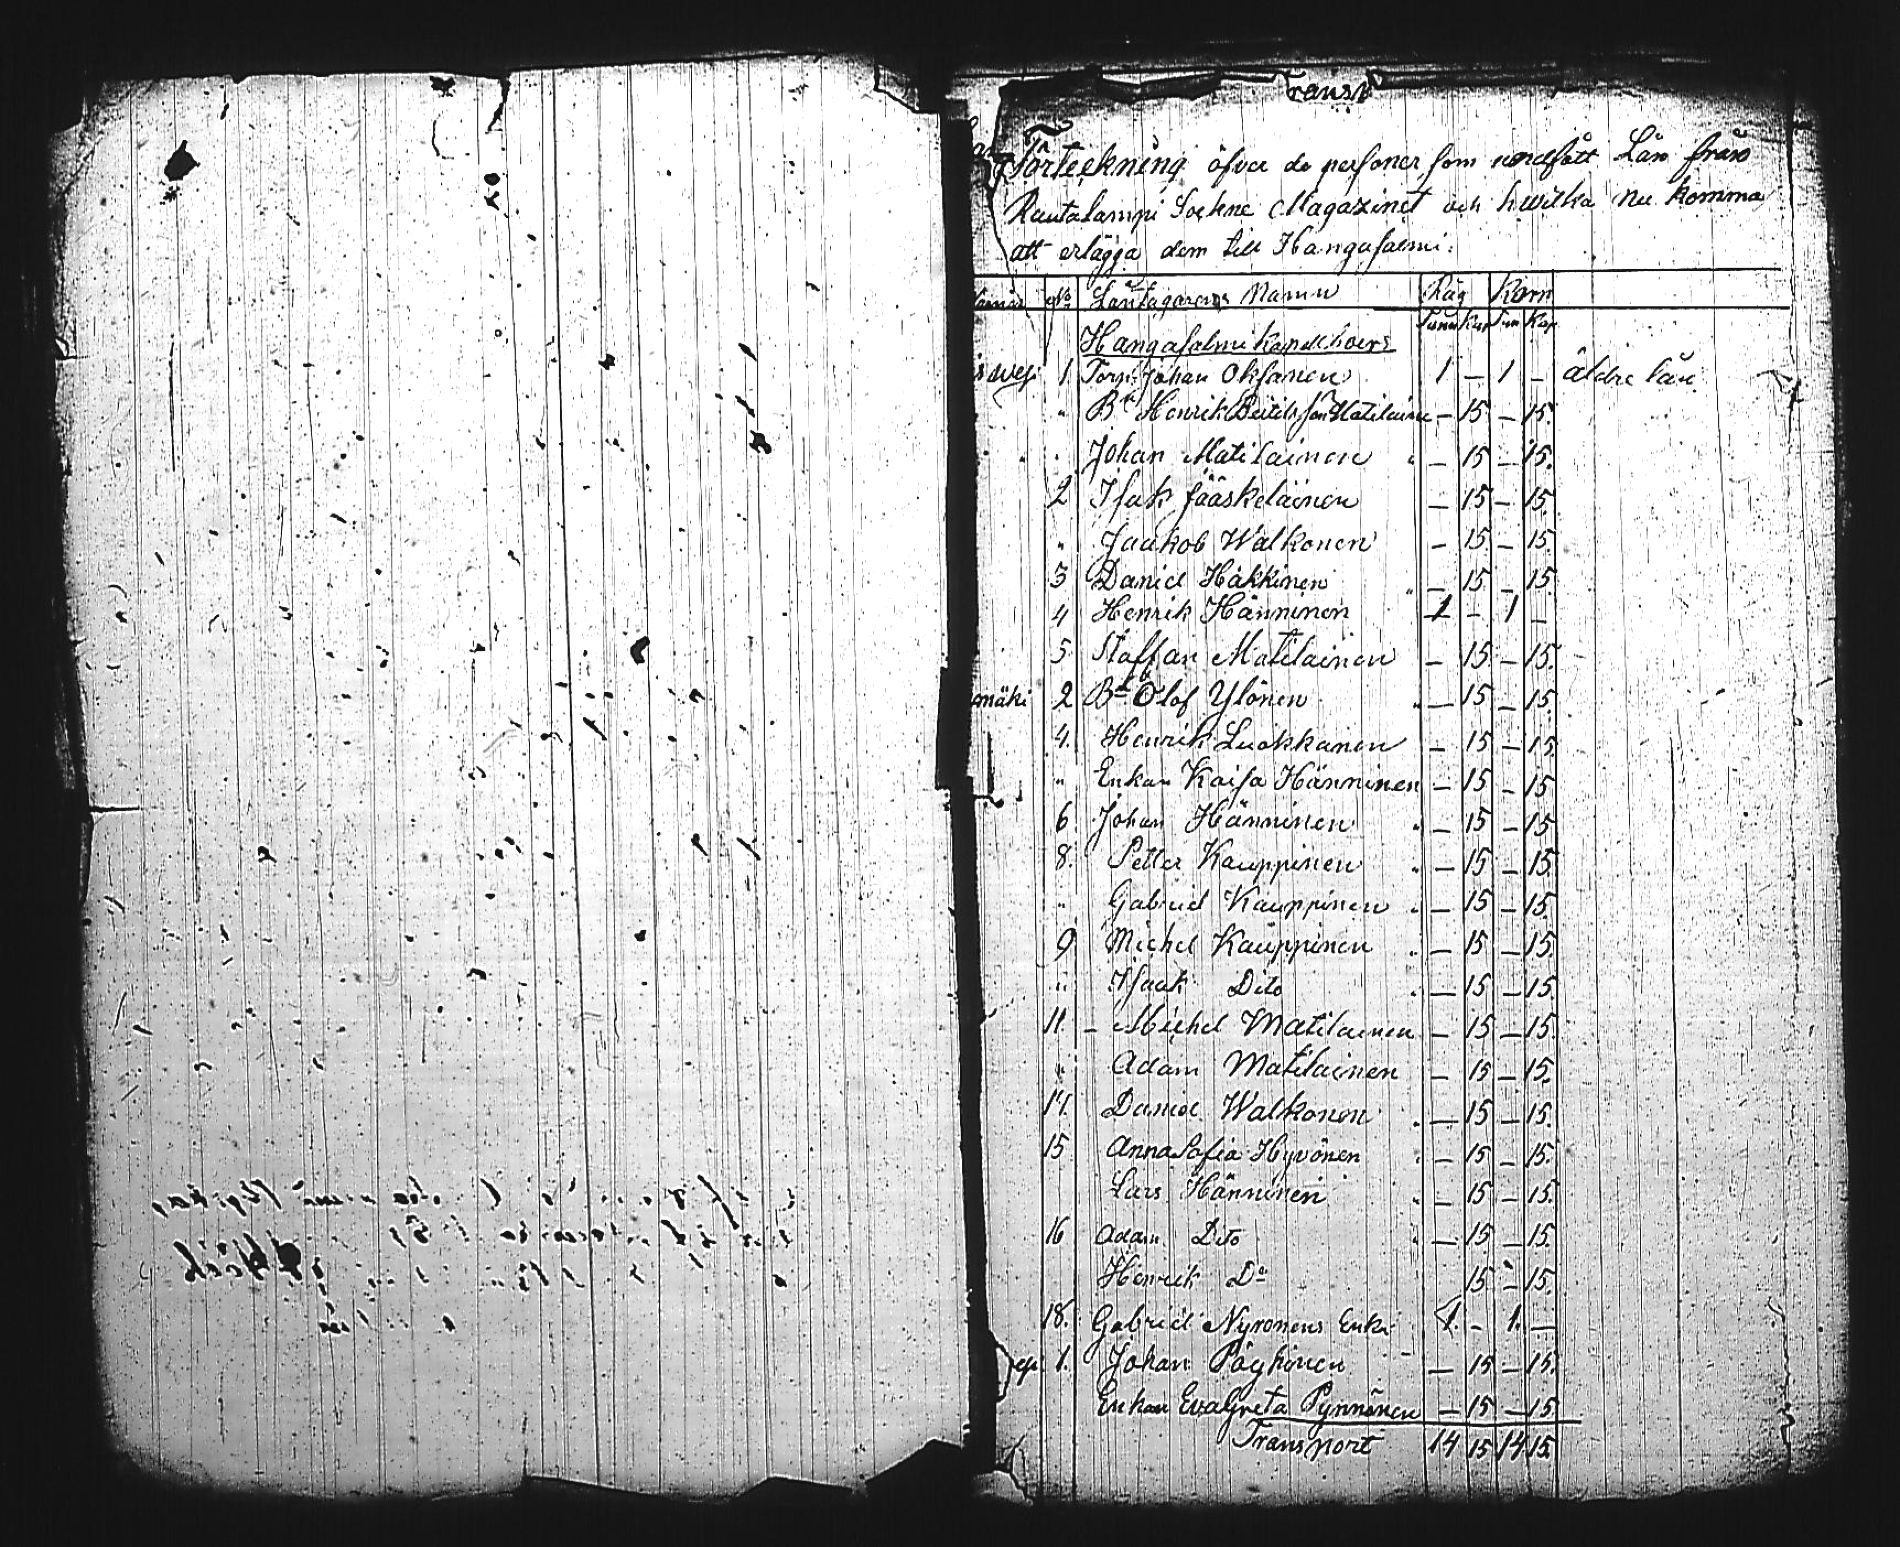 Transp
Förteckning öfver de personer, som undfått Lån från
Rautalampi Sockne Magazinet och hwilka nu komma
att erlägga dem till Hangasalmi:
No Låntagarens Namn Råg Korn
Tunn Kap Tun Kap
Hangasalmi Kapellboers
wesi 1 Torp. Johan Oksanen 1 — 1 — äldre lån
" Bn Henrik Matilainen — 15 — 15.
" Johan Matilainen — 15 — 15.
2 Isak Jääskeläinen — 15 — 15.
" Jaakob Walkonen — 15 — 15.
3 Daniel Häkkinen — 15 — 15.
4 Henrik Hänninen 1 — 1 —
5 Staffan Matilainen — 15 — 15.
mäki 2 Bn Olof Ylönen — 15 — 15
4. Henrik Luokkanen — 15 — 15
" Enkan Kaisa Hänninen — 15 — 15
6 Johan Hänninen — 15 — 15
8. Petter Kauppinen — 15 — 15.
" Gabriel Kauppinen — 15 — 15.
9 Michel Kauppinen — 15 — 15.
" Isaak Dito — 15 — 15.
11 – Michel Matilainen — 15 — 15.
" Adam Matilainen — 15 — 15.
14. Daniel Walkonen — 15 — 15.
15 Anna Sofia Hyvönen — 15 — 15.
Lars Hänninen — 15 — 15.
16 Adam Dito — 15 — 15.
Henrik Do 15 — 15.
18. Gabriel Nyronens Enka 1. – 1. —
1. Johan Pöyhönen — 15 — 15.
Enkan Eva Greta Pynnönen — 15 — 15
Transport 14 15 14 15.